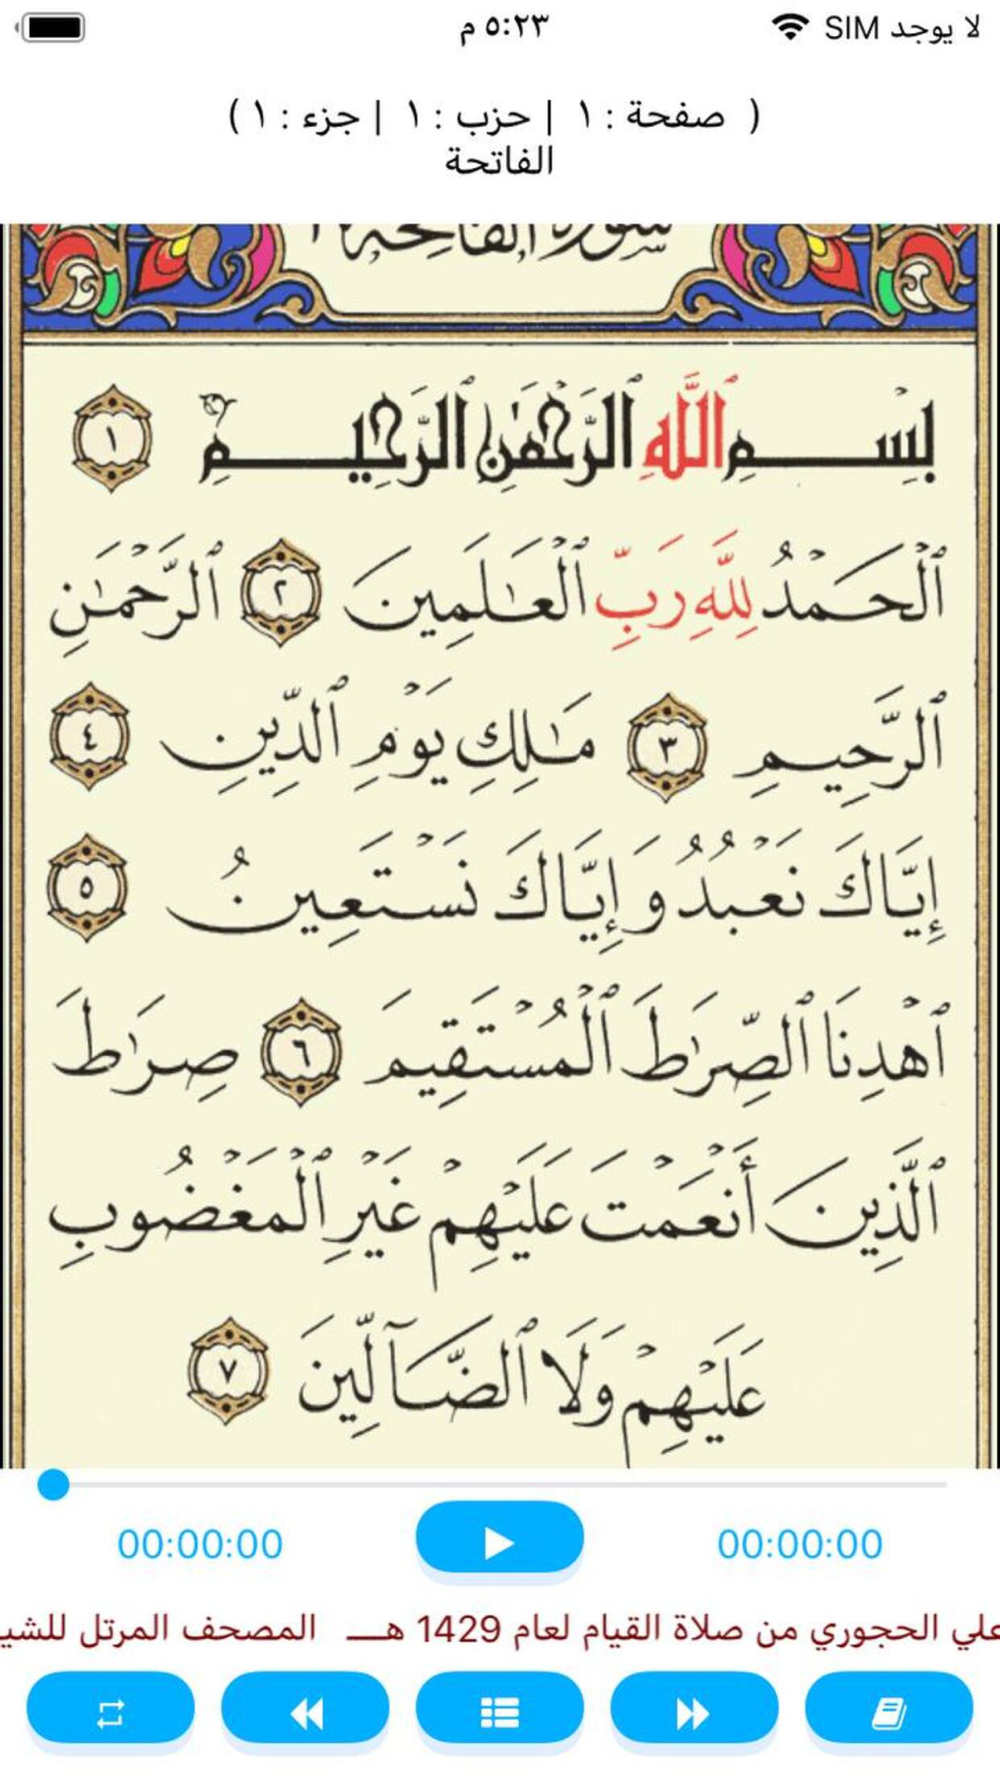 لا يوجد SIM ٥:٢٣ م
( صفحة : ١ | حزب : ١ | جزء : ١ )
الفاتحة
سورة الفاتحة
بِسْمِ ٱللَّهِ ٱلرَّحْمَٰنِ ٱلرَّحِيمِ ١
ٱلْحَمْدُ لِلَّهِ رَبِّ ٱلْعَٰلَمِينَ ٢ ٱلرَّحْمَٰنِ
ٱلرَّحِيمِ ٣ مَٰلِكِ يَوْمِ ٱلدِّينِ ٤
إِيَّاكَ نَعْبُدُ وَإِيَّاكَ نَسْتَعِينُ ٥
ٱهْدِنَا ٱلصِّرَٰطَ ٱلْمُسْتَقِيمَ ٦ صِرَٰطَ
ٱلَّذِينَ أَنْعَمْتَ عَلَيْهِمْ غَيْرِ ٱلْمَغْضُوبِ
عَلَيْهِمْ وَلَا ٱلضَّآلِّينَ ٧
00:00:00 00:00:00
علي الحجوري من صلاة القيام لعام 1429 هـــ المصحف المرتل للشي